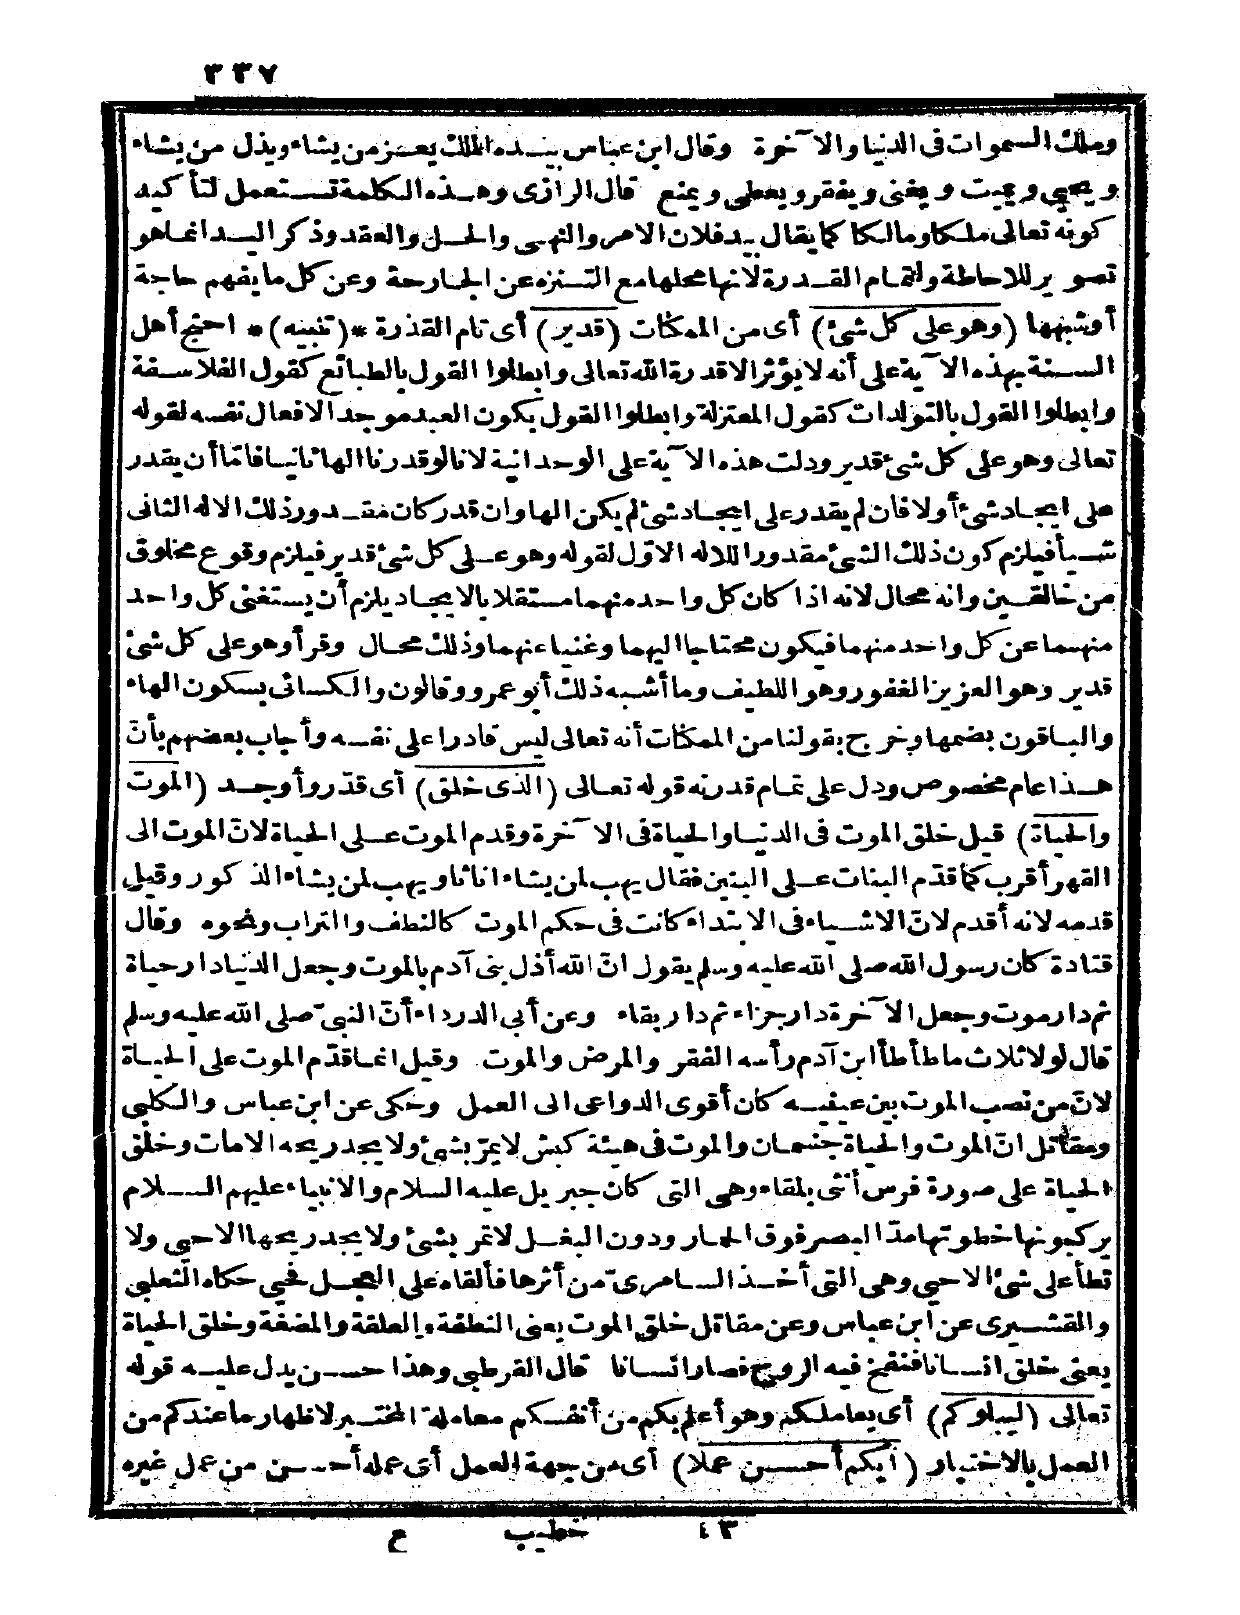 ٣٣٧
وملك السموات فى الدنيا والآخرة وقال ابن عباس بيـــده الملك يعـز من يشاء ويذل من يشاء
ويحيي ويميت ويغنى ويفقر ويعطى ويمنع قال الرازى وهـذه الكلمة تستعمل لتأكيد
كونه تعالى ملكا ومالكا كما يقال بيد فلان الامر والنهى والحل والعقد وذكر اليد انما هو
تصوير للاحاطة ولتمام القدرة لانها محلها مع التنزه عن الجارحة وعن كل ما يفهم حاجة
أو شبهها (وهو على كل شئ) أى من الممكنات (قدير) أى تام القدرة *(تنبيه)* احتج أهل
السنة بهذه الآية على أنه لا يؤثر الا قدرة الله تعالى وابطلوا القول بالطبائع كقول الفلاسفة
وابطلوا القول بالتولدات كقول المعتزلة وابطلوا القول بكون العبد موجد الافعال نفسه لقوله
تعالى وهو على كل شئ قدير ودلت هذه الآية على الوحدانية لانا لو قدرنا الها ثانيا فامّا أن يقدر
على ايجاد شئ أولا فان لم يقدر على ايجاد شئ لم يكن الها وان قدر كان مقدور ذلك الاله الثانى
شيأ فيلزم كون ذلك الشئ مقدورا للاله الاوّل لقوله وهو على كل شئ قدير فيلزم وقوع مخلوق
من خالقين وانه محال لانه اذا كان كل واحد منهما مستقلا بالايجاد يلزم أن يستغنى كل واحد
منهما عن كل واحد منهما فيكون محتاجا اليهما وغنيا عنهما وذلك محال وقرأ وهو على كل شئ
قدير وهو العزيز الغفور وهو اللطيف وما أشبه ذلك أبو عمرو وقالون والكسائى بسكون الهاء
والباقون بضمها وخرج بقولنا من الممكنات أنه تعالى ليس قادرا على نفسه وأجاب بعضهم بأنّ
هذا عام مخصوص ودل على تمام قدرته قوله تعالى (الذى خلق) أى قدّر وأوجد (الموت
والحياة) قيل خلق الموت فى الدنيا والحياة فى الآخرة وقدم الموت على الحياة لانّ الموت الى
القهر أقرب كما قدّم البنات على البنين فقال يهب لمن يشاء اناثا ويهب لمن يشاء الذكور وقيل
قدمه لانه أقدم لانّ الاشياء فى الابتداء كانت فى حكم الموت كالنطف والتراب ونحوه وقال
قتادة كان رسول الله صلى الله عليه وسلم يقول انّ الله أذل بنى آدم بالموت وجعل الدنيا دار حياة
ثم دار موت وجعل الآخرة دار جزاء ثم دار بقاء وعن أبى الدرداء أنّ النبىّ صلى الله عليه وسلم
قال لولا ثلاث ما طأطأ ابن آدم رأسه الفقر والمرض والموت وقيل انما قدّم الموت على الحياة
لانّ من نصب الموت بين عينيه كان أقوى الدواعى الى العمل وحكى عن ابن عباس والكلبى
ومقاتل انّ الموت والحياة جسمان والموت فى هيئة كبش لا يمرّ بشئ ولا يجد ريحه الا مات وخلق
الحياة على صورة فرس أنثى بلقاء وهى التى كان جبريل عليه السلام والانبياء عليهم السلام
يركبونها خطوتها مدّ البصر فوق الحمار ودون البغل لا تمر بشئ ولا يجد ريحها الا حيى ولا
تطأ على شئ الا حيي وهى التى أخذ السامرىّ من أثرها فألقاه على العجل فحيى حكاه الثعلبى
والقشيرى عن ابن عباس وعن مقاتل خلق الموت يعنى النطفة والعلقة والمضغة وخلق الحياة
يعنى خلق انسانا فنفخ فيه الروح فصار انسانا قال القرطبى وهذا حسن يدل عليه قوله
تعالى (ليبلوكم) أى يعاملكم وهو أعلم بكم من أنفسكم معاملة المختبر لاظهار ما عندكم من
العمل بالاختيار (أيكم أحسن عملا) أى من جهة العمل أى عمله أحسن من عمل غيره
٤٣ خطيب ع